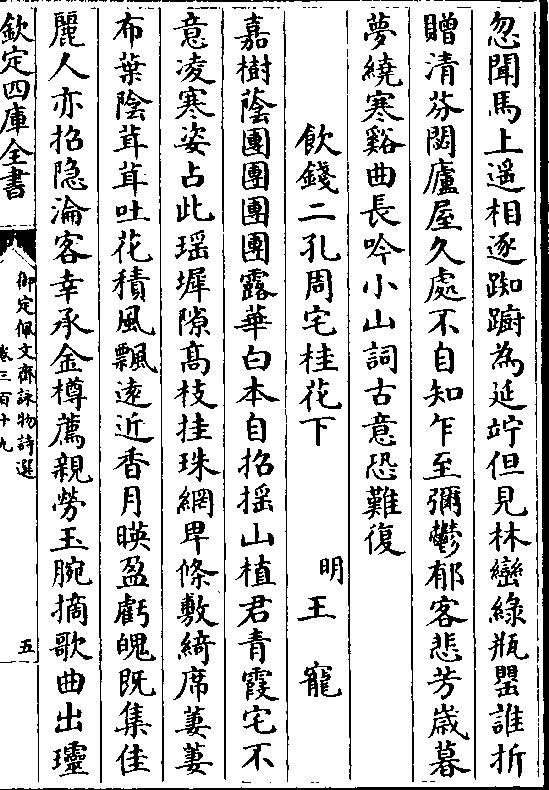 忽聞馬上遥相逐踟蹰為延竚但見林巒緑瓶罌誰折
贈清芬閟廬屋久處不自知乍至彌鬱郁客悲芳歳暮
夢繞寒谿曲長吟小山詞古意恐難復
飲錢二孔周宅桂花下 明王寵
嘉樹蔭團團團團露華白本自招揺山植君青霞宅不
意凌寒姿占此瑶墀隙髙枝挂珠網卑條敷綺席萋萋
布葉陰茸茸吐花積風飄遠近香月暎盈虧魄既集佳
麗人亦招隐淪客幸承金樽薦親勞玉腕摘歌曲出瓊
欽定四庫全書
御定佩文齋詠物詩選
卷三百十九
五